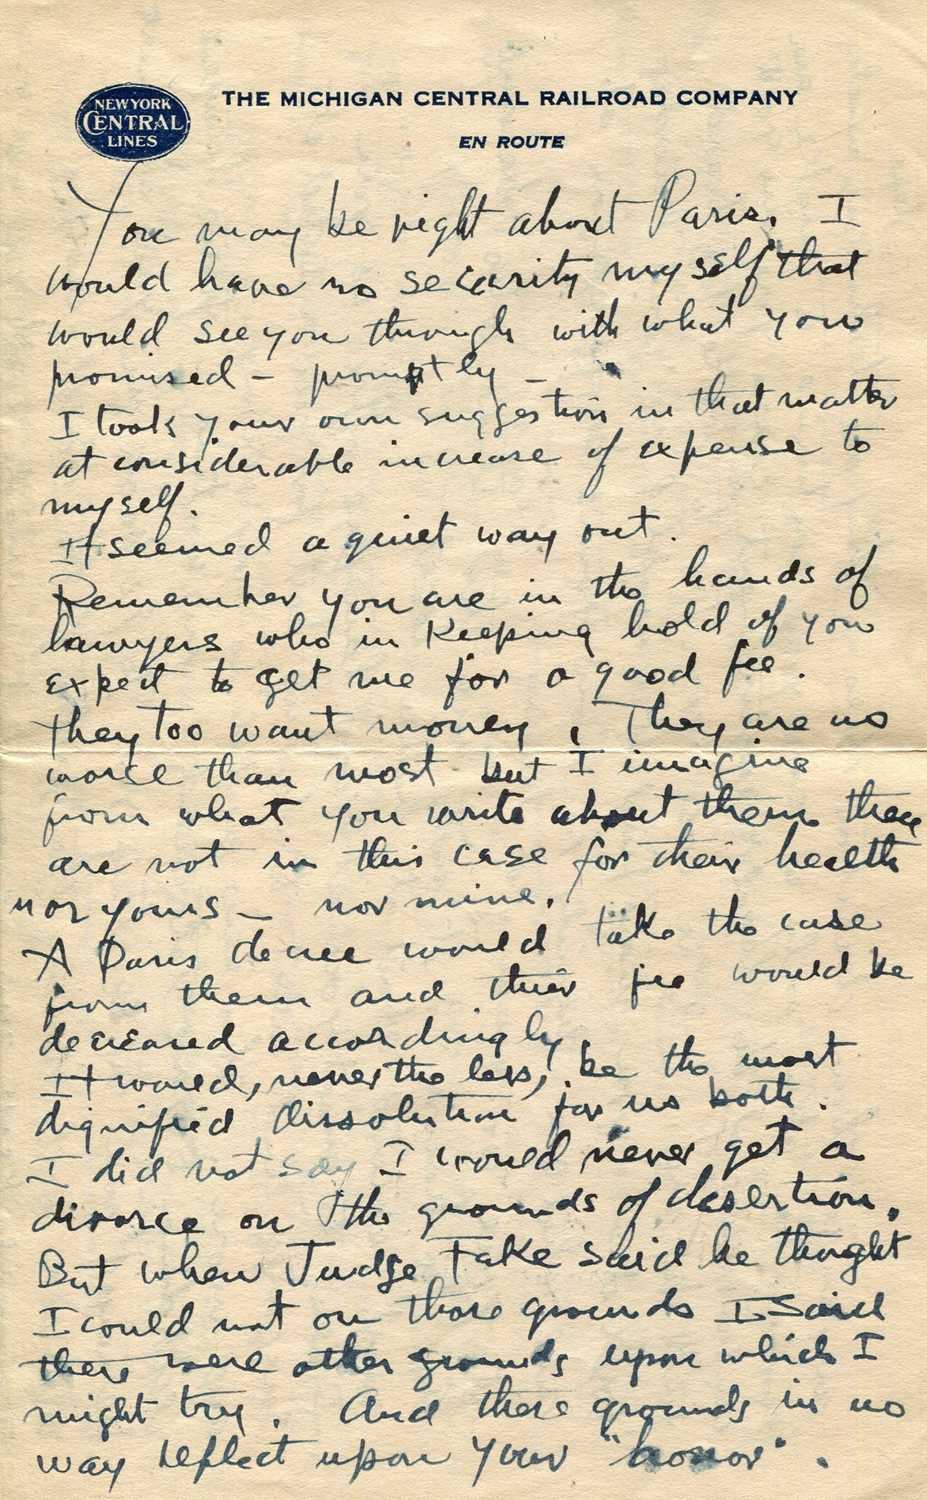 NEW YORK
CENTRAL
LINES
THE MICHIGAN CENTRAL RAILROAD COMPANY
EN ROUTE
You may be right about Paris. I
would have no security myself that
would see you through with what you
promised – promptly –
I took your own suggestion in that matter
at considerable increase of expense to
myself.
It seemed a quiet way out.
Remember you are in the hands of
lawyers who in keeping hold of you
expect to get me for a good fee.
They too want money. They are no
worse than most but I imagine
from what you write about them they
are not in this case for their health
nor yours – nor mine.
A Paris decree would take the case
from them and their fee would be
decreased accordingly
It would, never the less, be the most
dignified dissolution for us both.
I did not say I would never get a
divorce on the grounds of desertion.
But when Judge Fake said he thought
I could not on those grounds I said
there were other grounds upon which I
might try. And these grounds in no
way reflect upon your "honor".